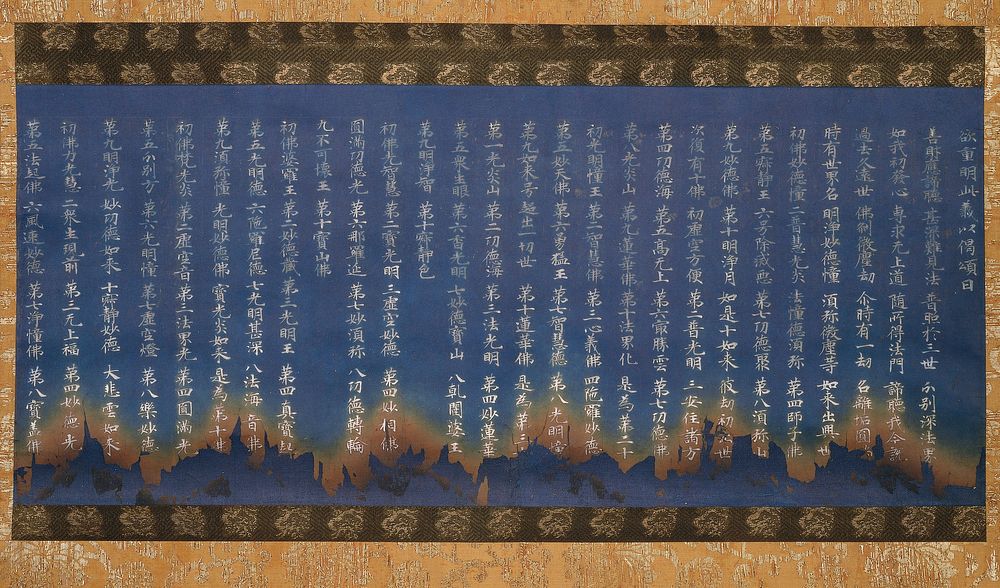 欲重明此義以偈頌曰
善財應諦聽 甚深難見法 普照於三世 分別深法界
如我初發心 專求无上道 随所得法門 諦聽我今說
過去久遠世 佛剎微塵劫 尒時有一劫 名離垢圓
時有世界名 明淨妙德幢 須弥微塵等 如來出興世
初佛妙德幢 二智慧光炎 法幢德須弥 第四師子佛
第五寂靜王 六号除滅惡 第七功德聚 第八須弥山
第九妙德佛 第十明淨月 如是十如來 彼劫初出世
次復有十佛 初虛空方便 第二普光明 三安住諸方
第四功德海 第五高无上 第六寂勝雲 第七功德佛
第八光炎山 第九蓮華佛 第十法界化 是為第二十
初光明幢王 第二智慧佛 第三心義佛 四陁羅妙德
第五妙天佛 第六勇猛王 第七智慧德 第八光明幢
第九如來号 超出一切世 第十蓮華佛 是為第三十
第一光炎山 第二功德海 第三法光明 第四妙蓮華
第五衆生眼 第六香光明 七妙德寶山 八乹闥婆王
第九明淨智 第十寂靜色
初佛光智慧 第二寶光明 三虛空妙德 第四妙相佛
圓滿功德光 第六那羅延 第七妙須弥 八功德轉輪
九不可壞王 第十寶山佛
初佛婆羅王 第二妙德藏 第三光明王 第四真實起
第五光明德 六陁羅尼德 七光明甚深 八法海音佛
第九須弥幢 光明妙德佛 寶光炎如來 是為第十佛
初佛梵光炎 第二虛空音 第三法界光 第四圓滿光
第五分別方 第六光明幢 第七虛空燈 第八樂妙德
第九明淨光 妙功德如來 十寂靜妙德 大悲雲如來
初佛力光慧 二衆生現前 第三无上福 第四妙德光
第五法起佛 六風速妙德 第七淨幢佛 第八寶蓋佛